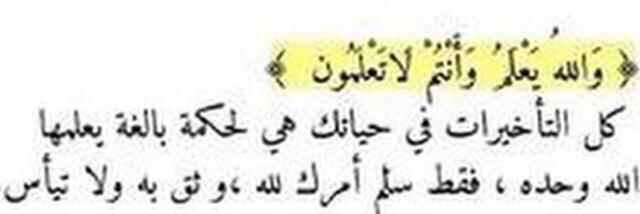 ﴿ وَاللهُ يَعْلَمُ وَأَنْتُمْ لَا تَعْلَمُون ﴾
كل التأخيرات في حياتك هي لحكمة بالغة يعلمها
الله وحده ، فقط سلم أمرك لله ،و ثق به ولا تيأس.